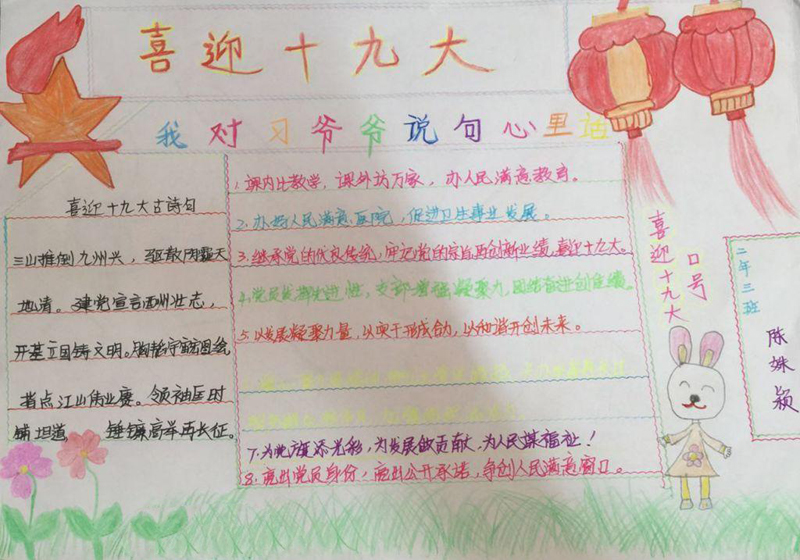 喜迎十九大
我对习爷爷说句心里话
喜迎十九大古诗句
三山推倒九州兴，驱散阴霾天
地清。建党宣言酒州壮志，
开基立国铸文明。胸怀宇宙图绘
指点江山伟业赓。领袖匡时
铺坦道 锤镰高举再长征。
1.课内比教学，课外访万家，办人民满意教育。
2.办好人民满意医院，促进卫生事业发展。
3.继承党的优良传统，牢记党的宗旨再创新业绩，喜迎十九大。
4.党员发挥先进性，支部增强凝聚力，团结奋进创佳绩。
5.以发展凝聚力量，以实干形成合力，以和谐开创未来。
7.为党旗添光彩，为发展做贡献，为人民谋福祉！
8.亮出党员身份，亮出公开承诺，争创人民满意窗口。
喜迎十九大
口号
二年三班
陈姝颖